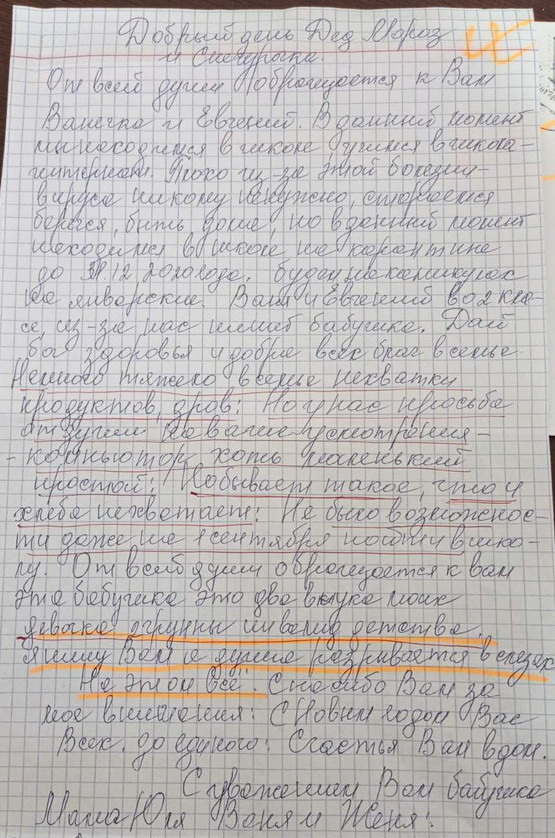 Добрый день Дед Мороз
и Снегурочка.
От всей души оброщоется к Вам
Ванечка и Евгений. В данний момент
мы находимся в школе учимся в школа-
интернат. Плохо из-за этой болезни-
вируса никому ненужно, стараемся
беречся, быть дома, но вданний момент
находимся в школе на карантине
до 12.2020 года. будем на каникулах
на январские. Ваня и Евгений во 2 кла-
се, из-за нас пишет бабушка. Дай
бог здоровья и добра всех благ в семье.
Немного тяжело всемье нехватки
продуктов, дров: Но у нас просьба
от души на ваше усмотрения-
- компьютор хоть маленький
простой: Но бывает такое, что и
хлеба нехватает: Не было возможнос-
ти даже на 1 сентября пойти в шко-
лу. От всей души оброщоется к вам
это бабушка это два внука моих
девочка группы инвалид детства,
я пишу Вам а душа розривается в слезах
На этом всё. Спасибо Вам за
мое внимания: С Новым годом Вас
Всех. до единого: Счастья Вам в дом.
С уважением Вам бабушка
Мама Юля Ваня и Женя.